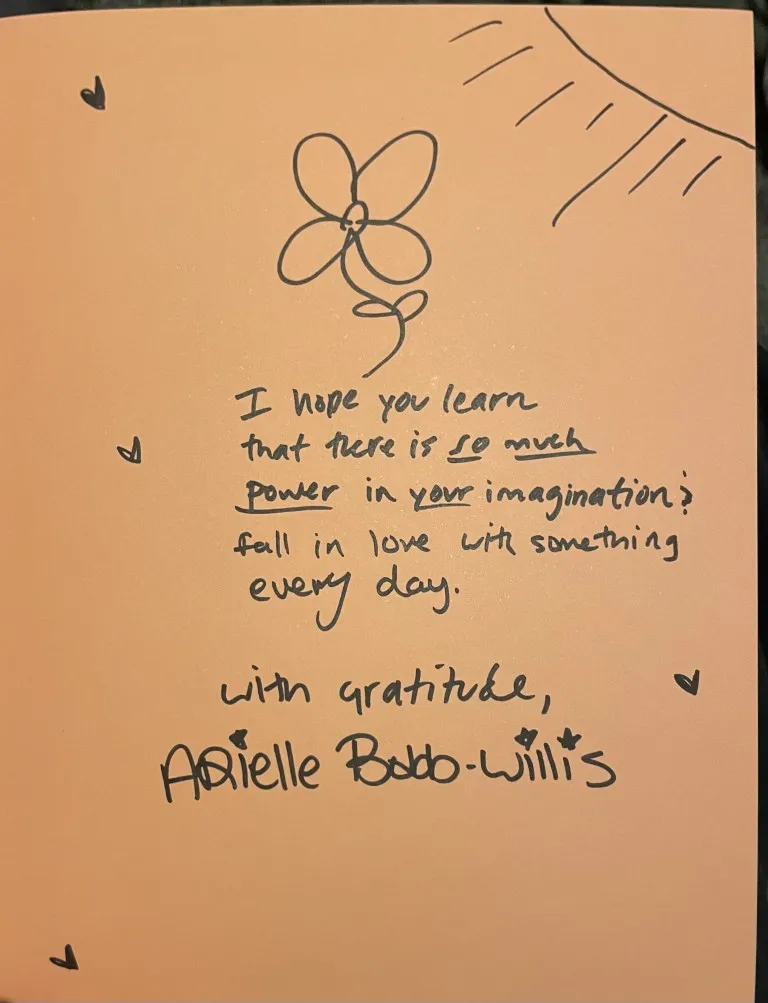 I hope you learn
that there is so much
power in your imagination;
fall in love with something
every day.
with gratitude,
Arielle Bobb-Willis